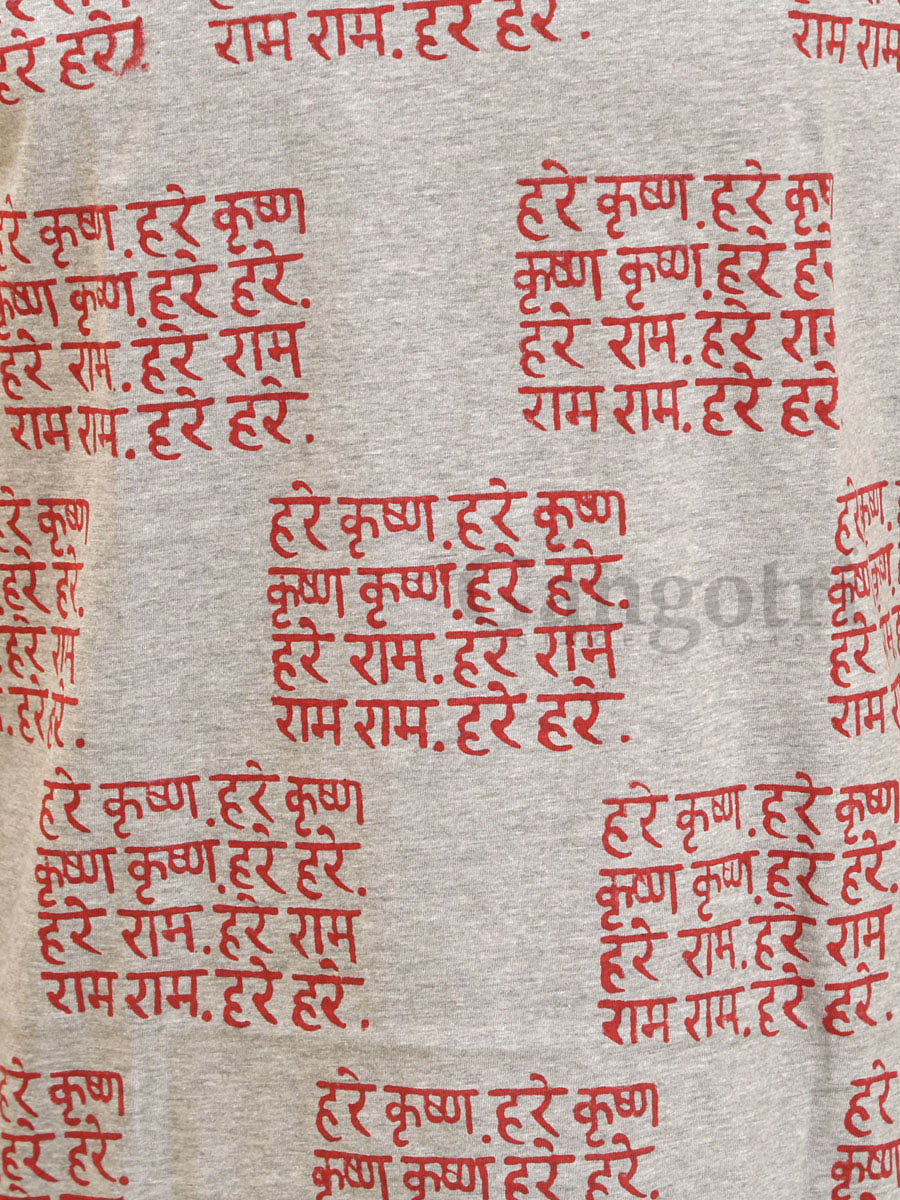 हरे हरे.
राम राम. हरे हरे.
राम राम
हरे कृष्ण.हरे कृष्ण
कृष्ण कृष्ण.हरे हरे.
हरे राम.हरे राम
राम राम.हरे हरे.
हरे कृष्ण.हरे कृष्ण
कृष्ण कृष्ण.हरे हरे
हरे राम.हरे राम
राम राम.हरे हरे
हरे कृष्ण
.हरे हरे.
.हरे राम
.हरे हरे.
हरे कृष्ण.हरे कृष्ण
कृष्ण कृष्ण.हरे हरे.
हरे राम.हरे राम
राम राम.हरे हरे.
हरे कृष्ण.
कृष्ण कृष्ण.
हरे राम
राम
हरे कृष्ण.हरे कृष्ण
कृष्ण कृष्ण.हरे हरे.
हरे राम.हरे राम
राम राम.हरे हरे.
हरे कृष्ण.हरे कृष्ण
कृष्ण कृष्ण.हरे हरे.
हरे राम.हरे राम
राम राम.हरे हरे.
हरे कृष्ण
हरे हरे.
हरे कृष्ण.हरे कृष्ण
कृष्ण कृष्ण.हरे हरे.
हरे
कृष्ण